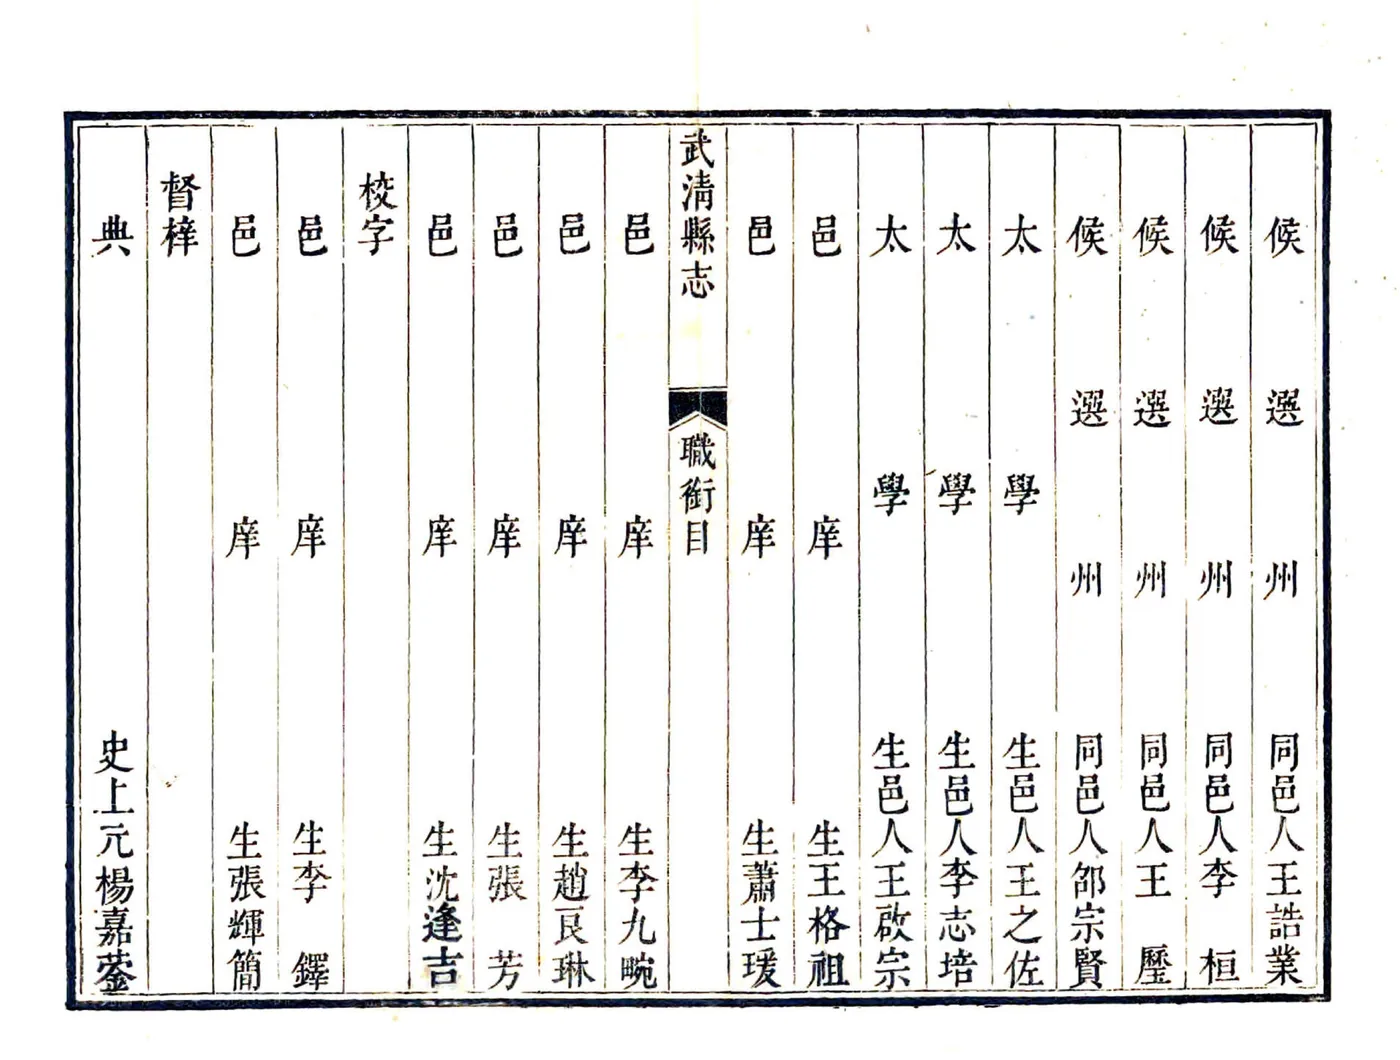 候選州同邑人王誥業
候選州同邑人李桓
候選州同邑人王壓
候選州同邑人邵宗賢
太學生邑人王之佐
太學生邑人李志培
太學生邑人王啟宗
邑庠生王格祖
邑庠生蕭士瑗
武淸縣志
職銜目
邑庠生李九畹
邑庠生趙良琳
邑庠生張芳
邑庠生沈逢吉
校字
邑庠生李鐸
邑庠生張輝簡
督梓
典史上元楊嘉蓥